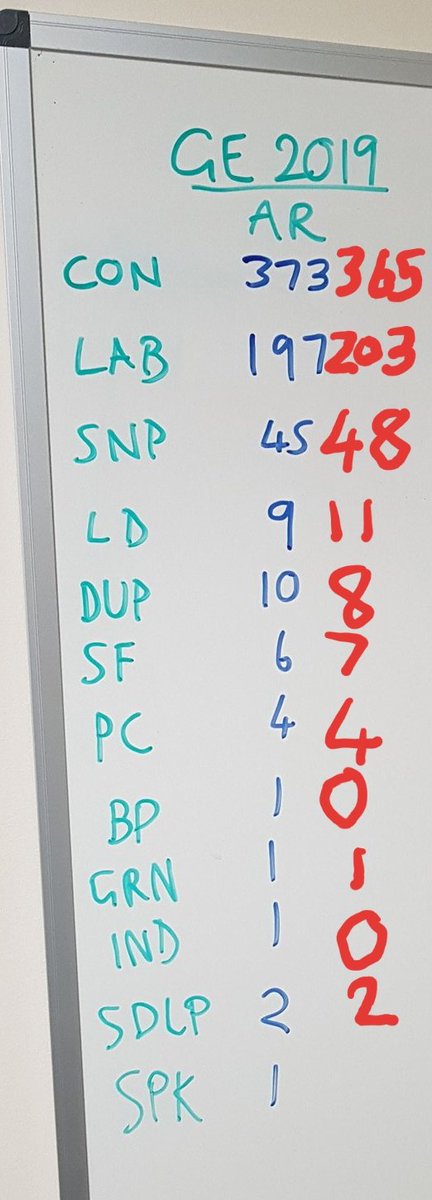 GE 2019
AR
CON 373 365
LAB 197 203
SNP 45 48
LD 9 11
DUP 10 8
SF 6 7
PC 4 4
BP 1 0
GRN 1 1
IND 1 0
SDLP 2 2
SPK 1